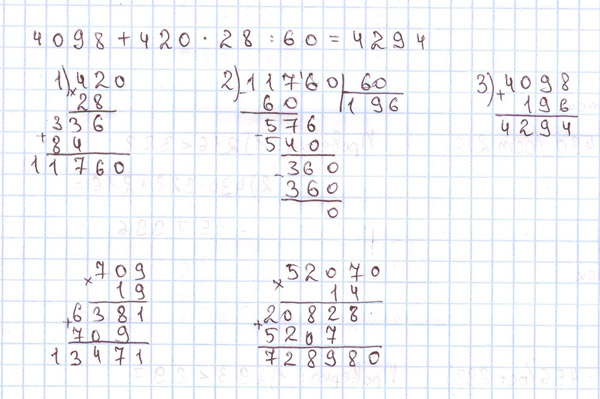 4098+420·28:60=4294
1) 420
× 28
336
+ 84
11760
2) 11760 | 60
- 60 | 196
576
- 540
360
- 360
0
3) 4098
+ 196
4294
709
× 19
6381
+ 709
13471
52070
× 14
20828
+ 5207
728980